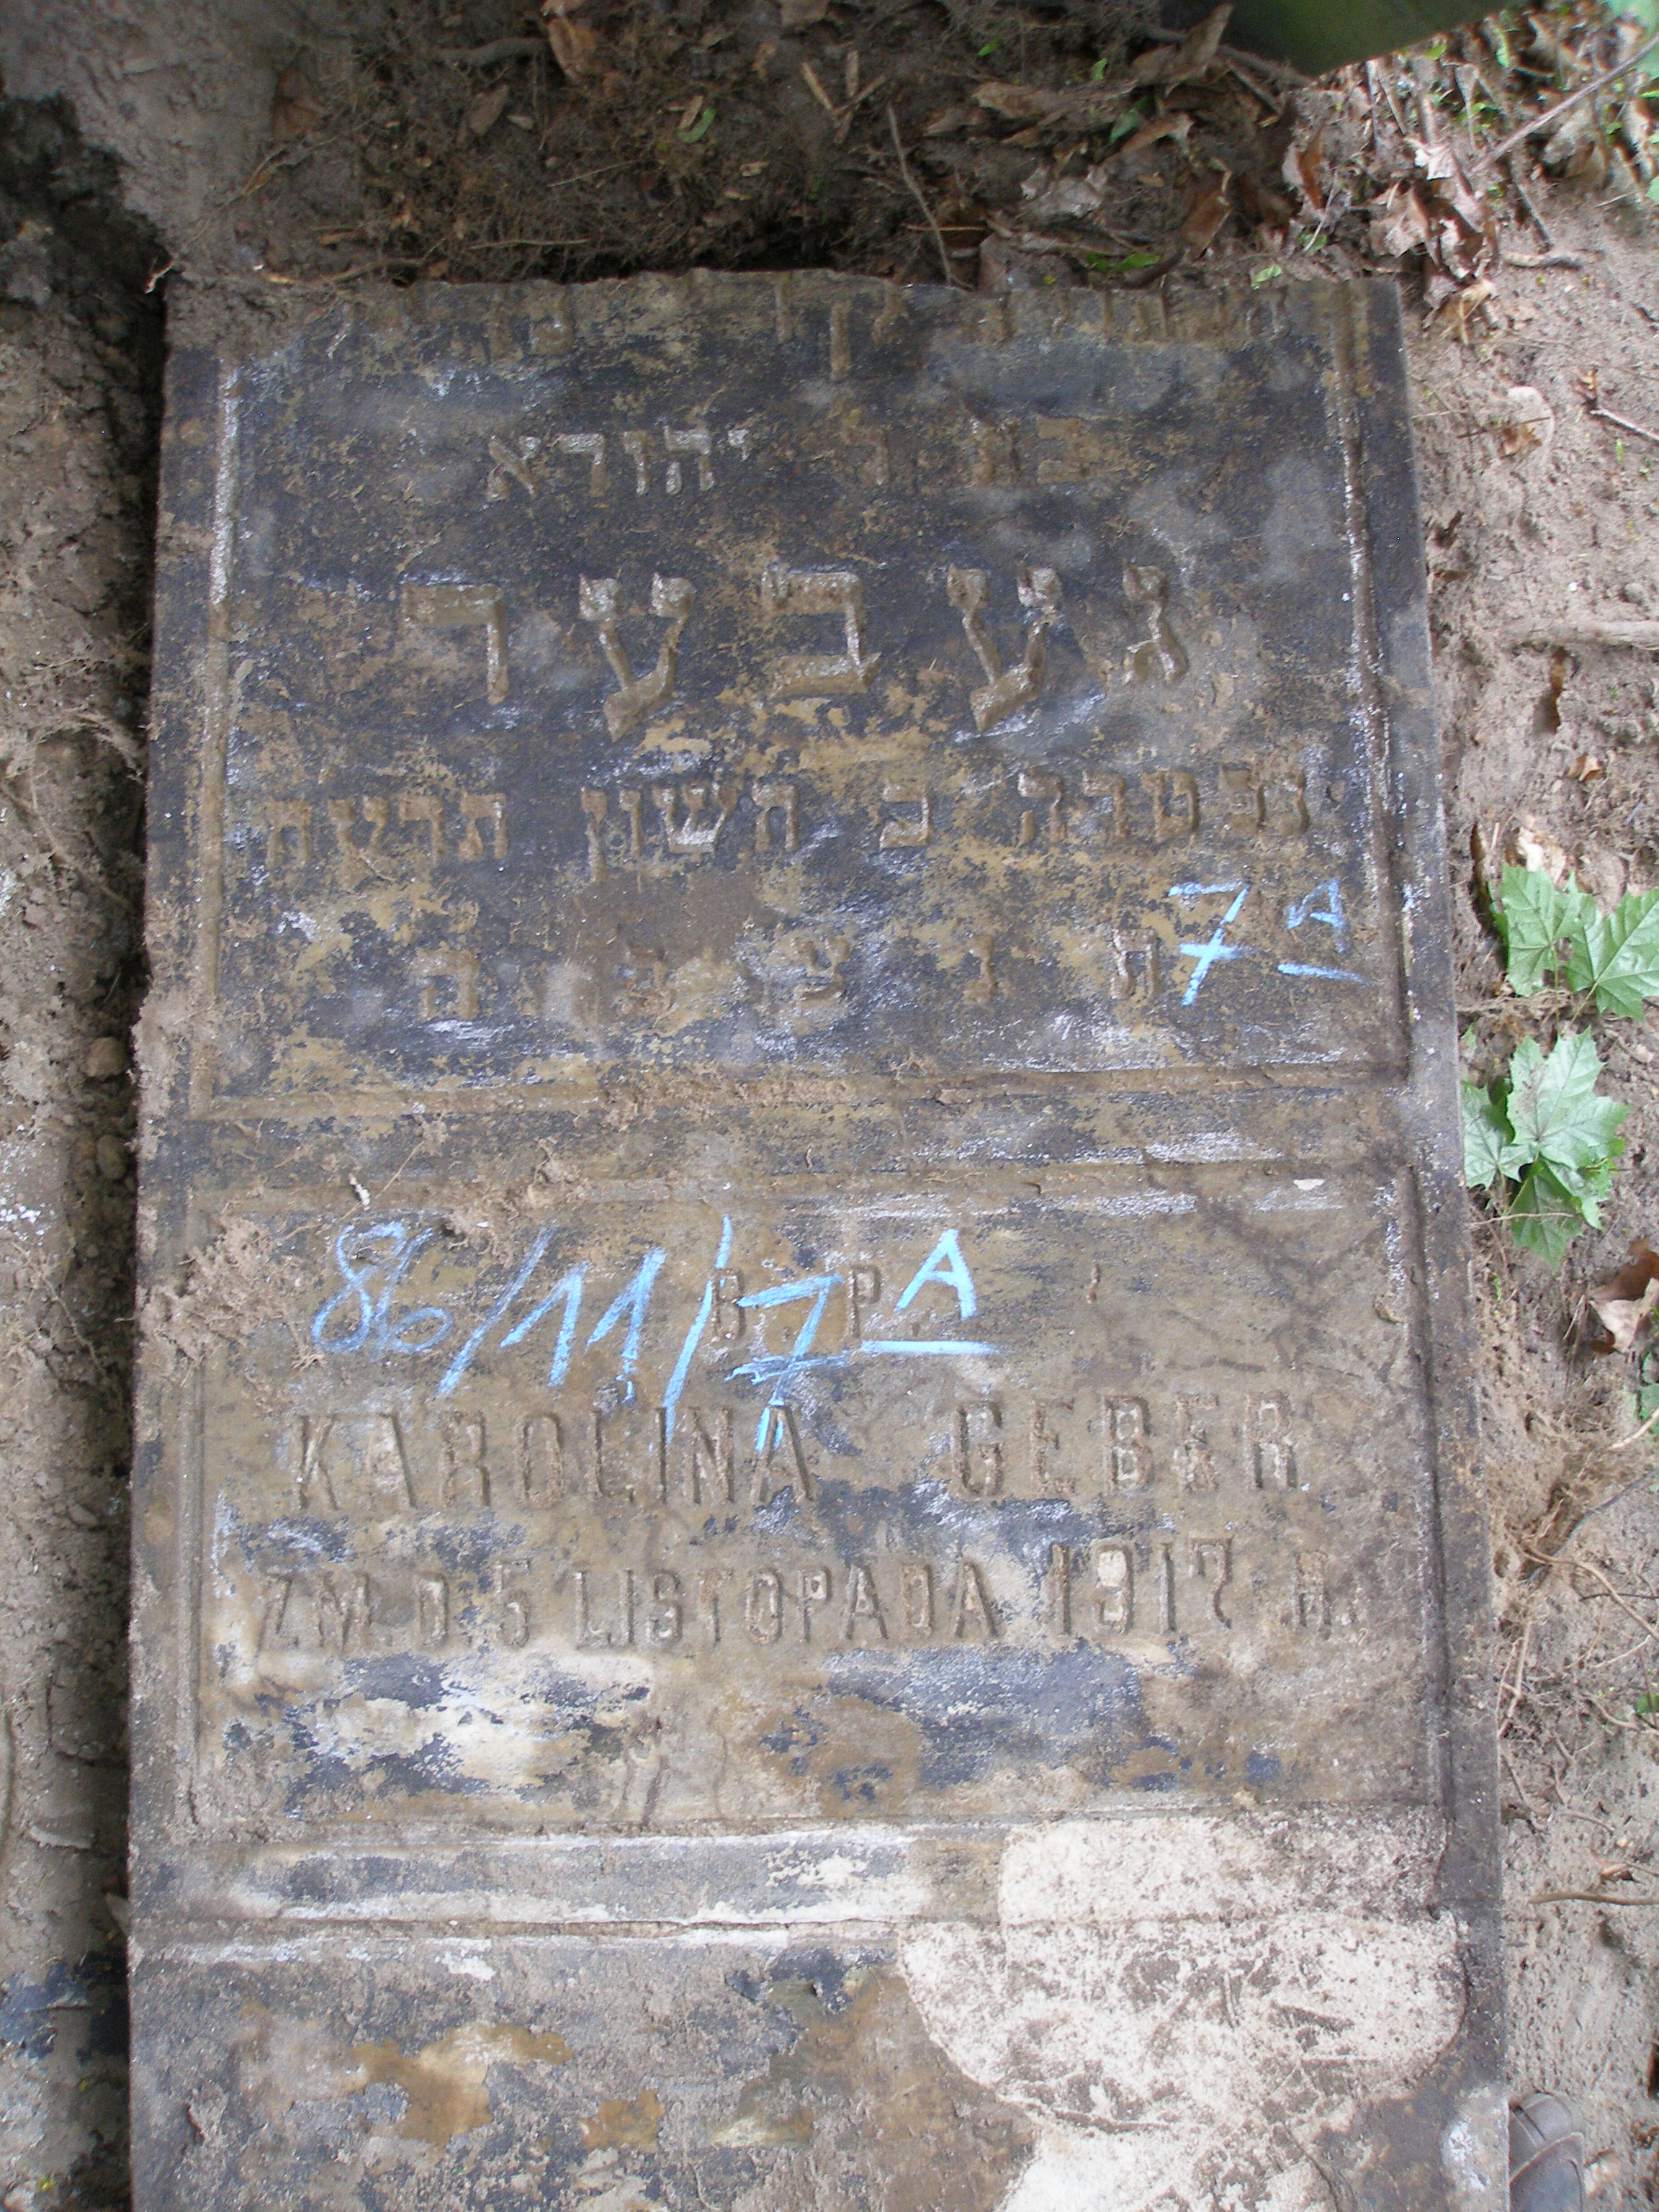 בת ר יהודא
געבער
נפטרה כ חשון תרעח
7A
ת נ צ ב ה
86/11/7A
B. P.
KAROLINA GEBER
ZM. D. 5 LISTOPADA 1917 R.